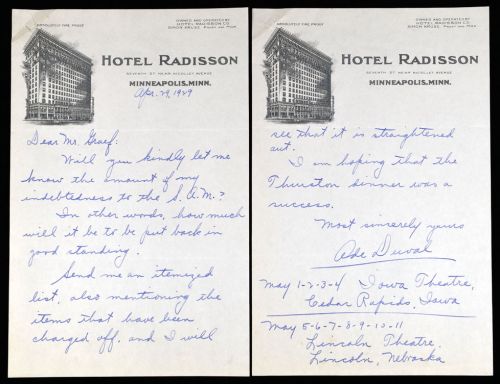 ABSOLUTELY FIRE PROOF
OWNED AND OPERATED BY
HOTEL RADISSON CO.
SIMON KRUSE, PREST. AND MGR.
HOTEL RADISSON
SEVENTH ST. NEAR NICOLLET AVENUE
MINNEAPOLIS, MINN.
Apr. 29, 1929
Dear Mr. Graef:
Will you kindly let me
know the amount of my
indebtedness to the S.A.M.?
In other words, how much
will it be to be put back in
good standing.
Send me an itemized
list, also mentioning the
items that have been
charged off, and I will
ABSOLUTELY FIRE PROOF
OWNED AND OPERATED BY
HOTEL RADISSON CO.
SIMON KRUSE, PREST. AND MGR.
HOTEL RADISSON
SEVENTH ST. NEAR NICOLLET AVENUE
MINNEAPOLIS, MINN.
see that it is straightened
out.
I am hoping that the
Thurston dinner was a
success.
Most sincerely yours
Ade Duval
May 1-2-3-4 Iowa Theatre,
Cedar Rapids, Iowa
May 5-6-7-8-9-10-11
Lincoln Theatre,
Lincoln, Nebraska